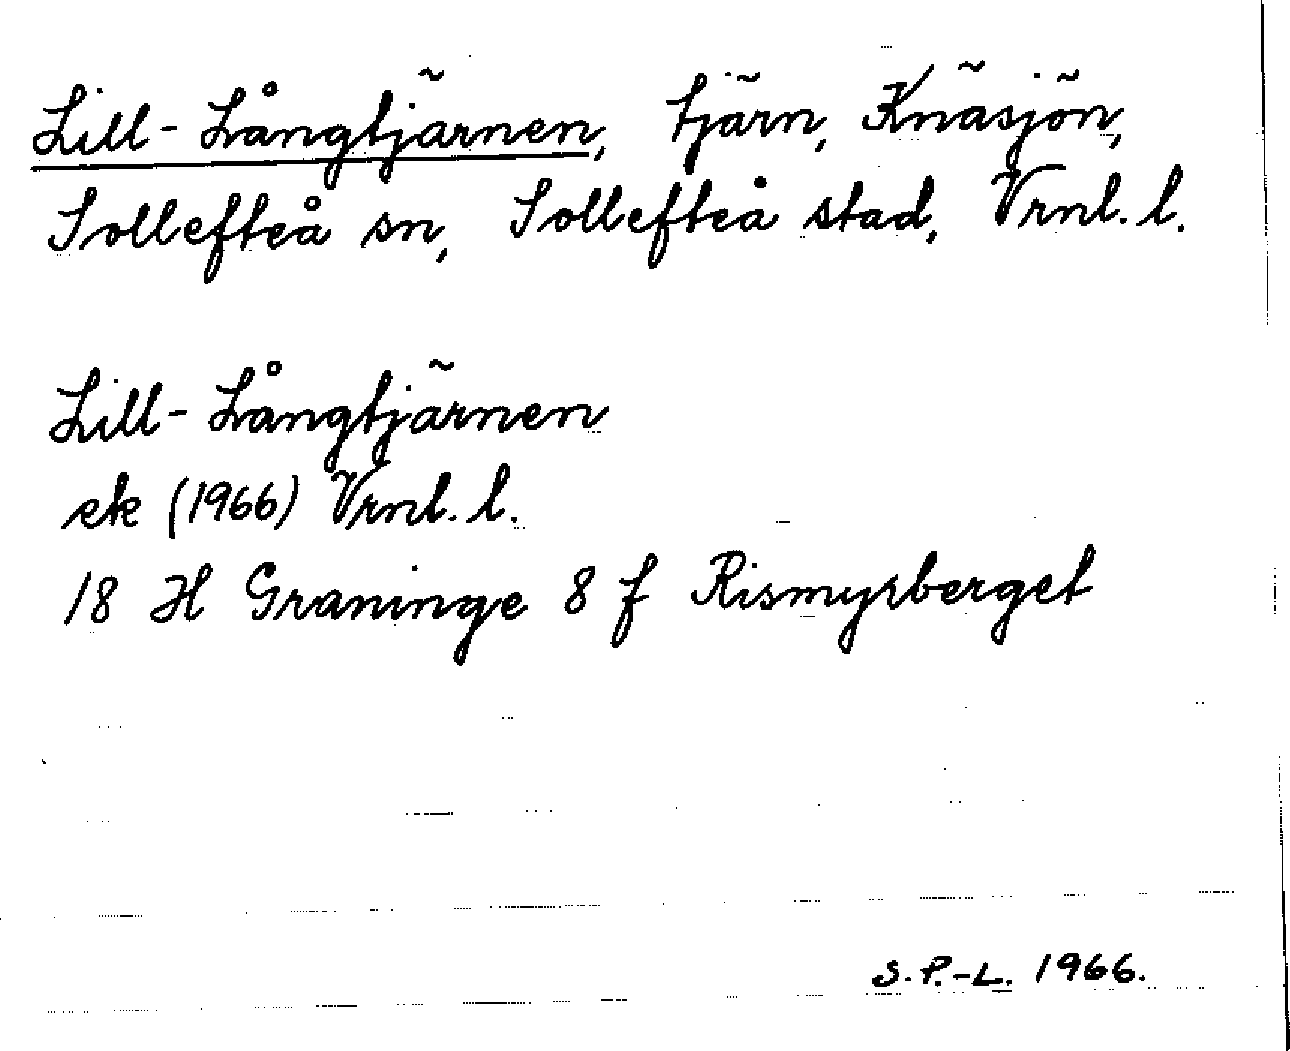 Lill-Långtjärnen, tjärn, Knäsjön,
Sollefteå sn, Sollefteå stad, Vrnl. l.
Lill-Långtjärnen
ek (1966) Vrnl. l.
18 H Graninge 8 f Rismyrberget
S.P.-L. 1966.